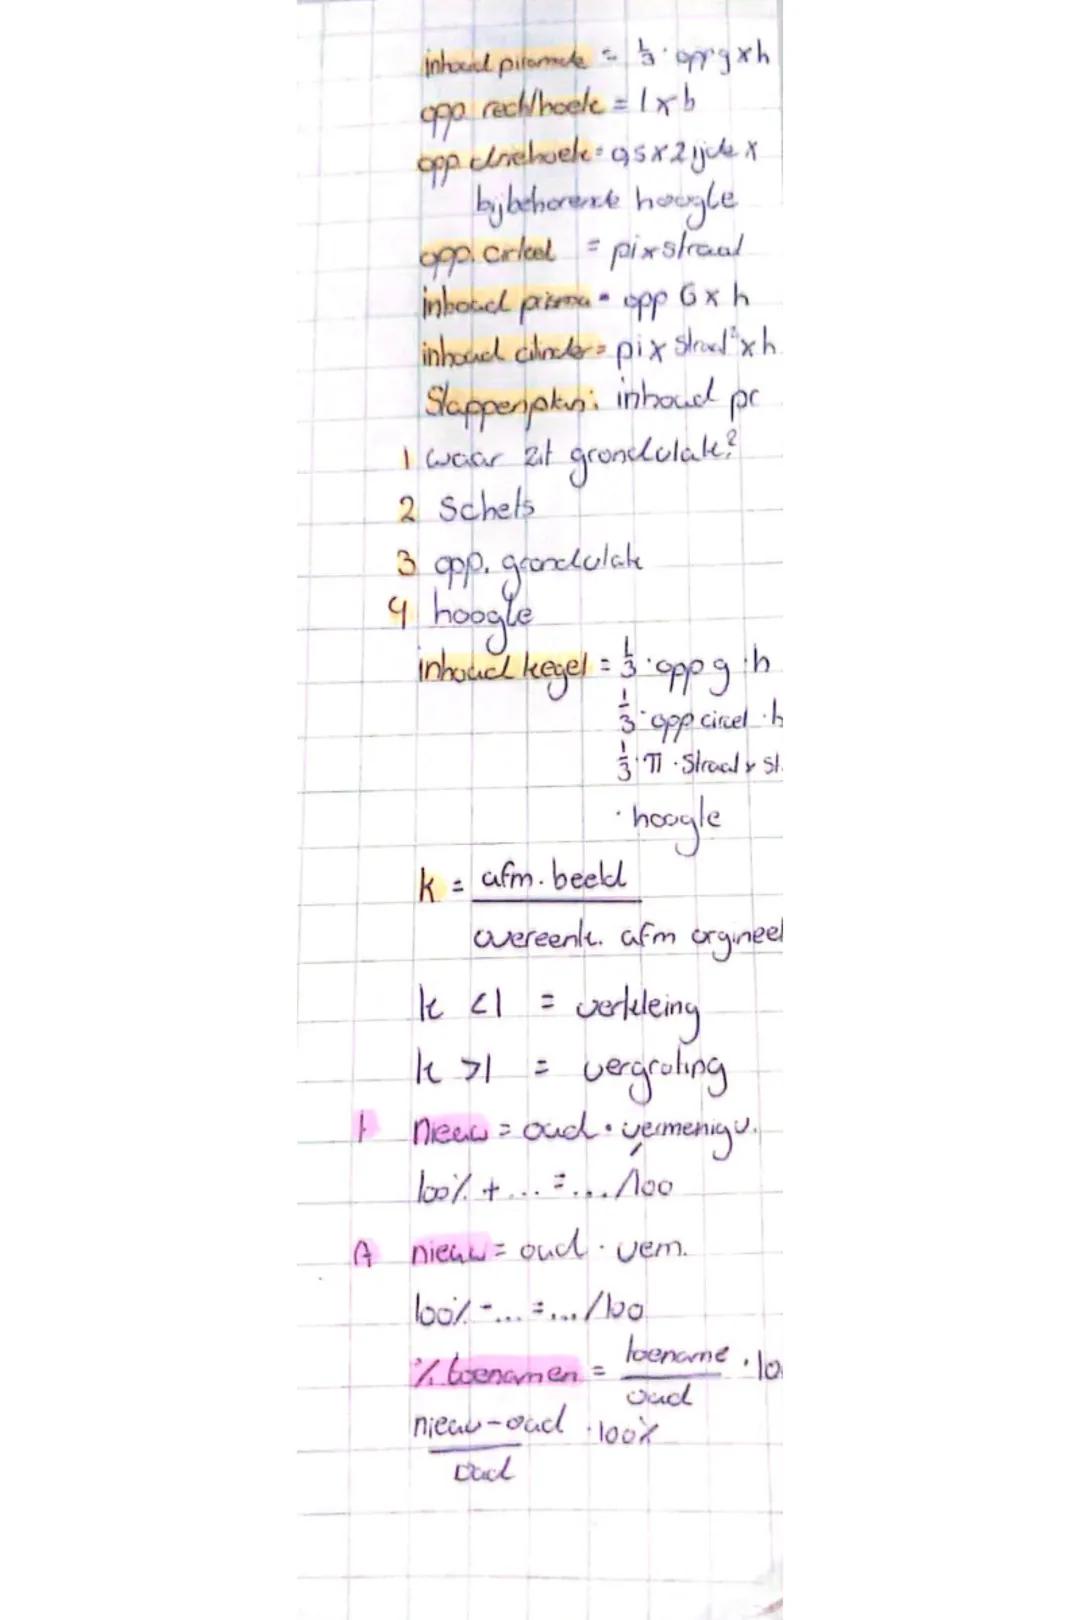 inhoud piramide = 1/3 · opp g x h
opp. rechthoek = l x b
opp. driehoek = 0,5 x zijde x
bijbehorende hoogte
opp. cirkel = pi x straal
inhoud prisma = opp G x h
inhoud cilinder = pi x straal² x h
Stappenplan: inhoud pr
1 waar zit grondvlak?
2 Schets
3 opp. grondvlak
4 hoogte
inhoud kegel = 1/3 · opp g · h
1/3 · opp circel · h
1/3 · π · Straal x st.
· hoogte
k = afm. beeld
overeenk. afm orgineel
k < 1 = verkleing
k > 1 = vergroting
t nieuw = oud · vermenigv.
100% + ... = ... /100
A nieuw = oud · verm.
100% - ... = ... /100
% toenamen = toename/oud · 10
nieuw - oud · 100%
oud